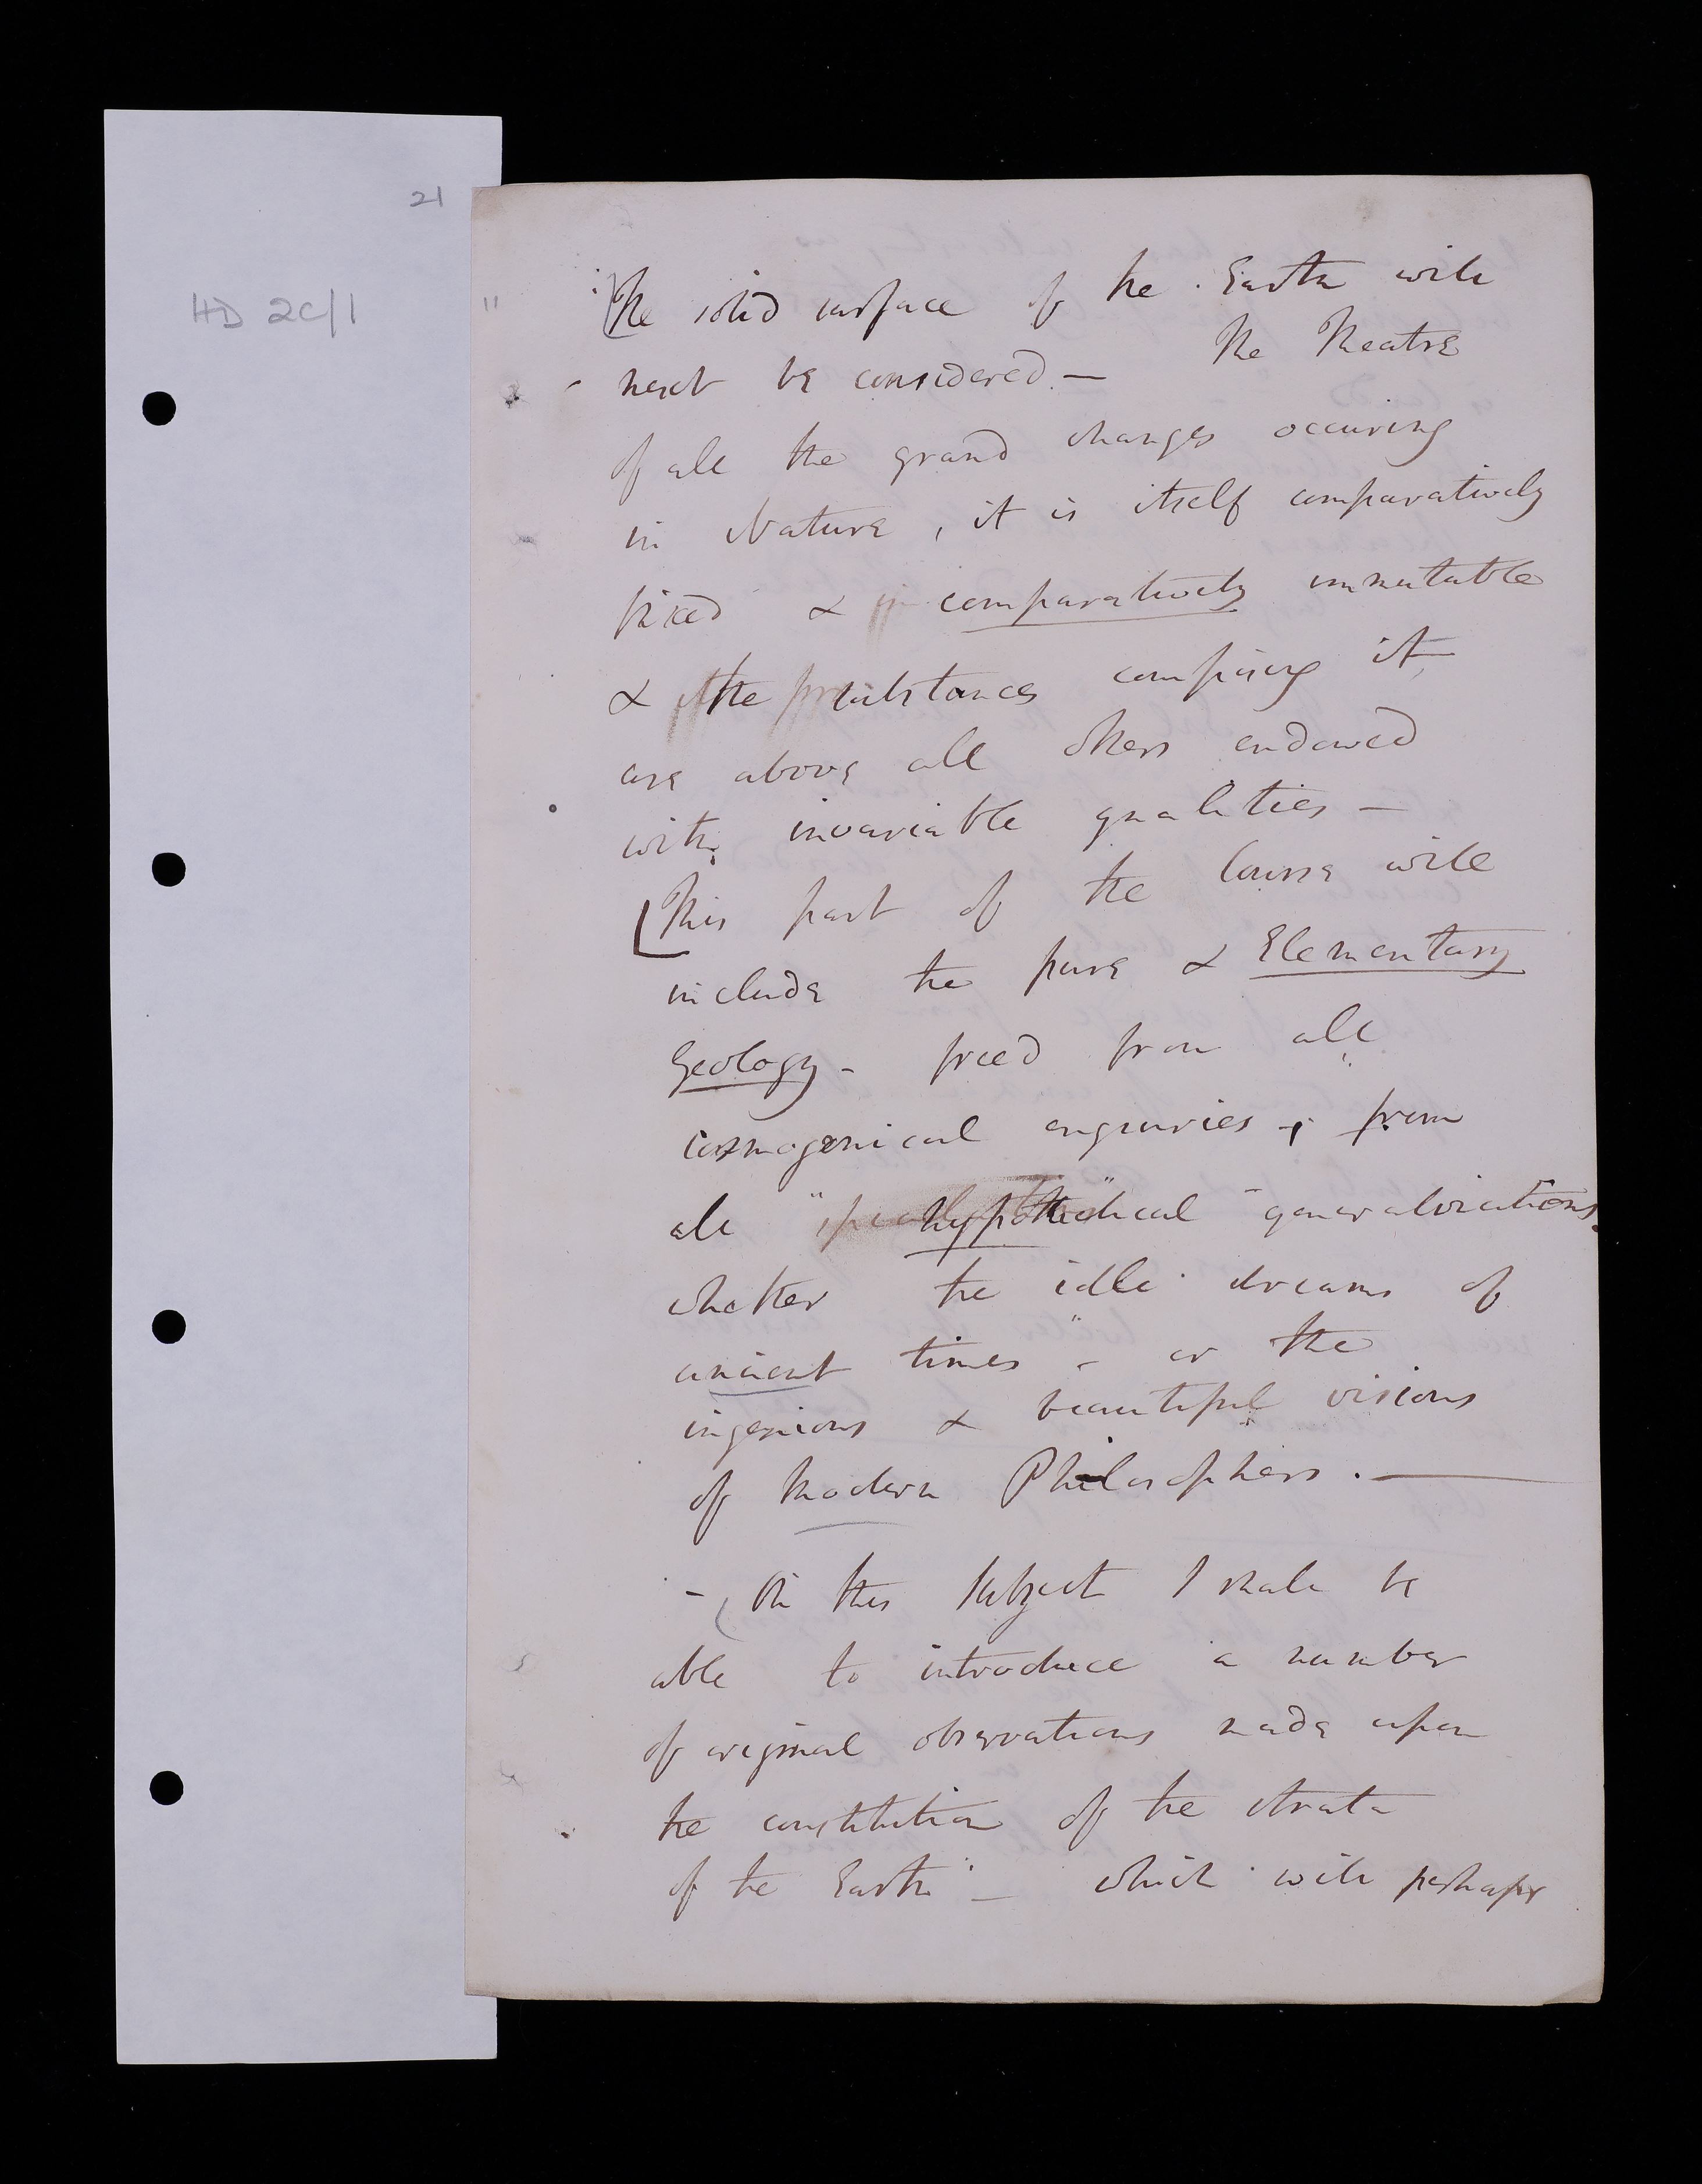 21
HD 2C/1
The solid surface of the Earth will
next be considered. — The Theatre
of all the grand changes occuring
in Nature, it is itself comparatively
fixed & comparatively immutable
& the substances composing it,
are above all others endowed
with invariable qualities —
[This part of the Course will
include the pure & Elementary
Geology - freed from all
cosmogonical enquiries, from
all "hypothetical" generalizations.
whether the idle dreams of
ancient times - or the
ingenious & beautiful visions
of modern Philosophers. —
- (On this subject I shall be
able to introduce a number
of original observations made upon
the constitution of the strata
of the Earth — which will perhaps